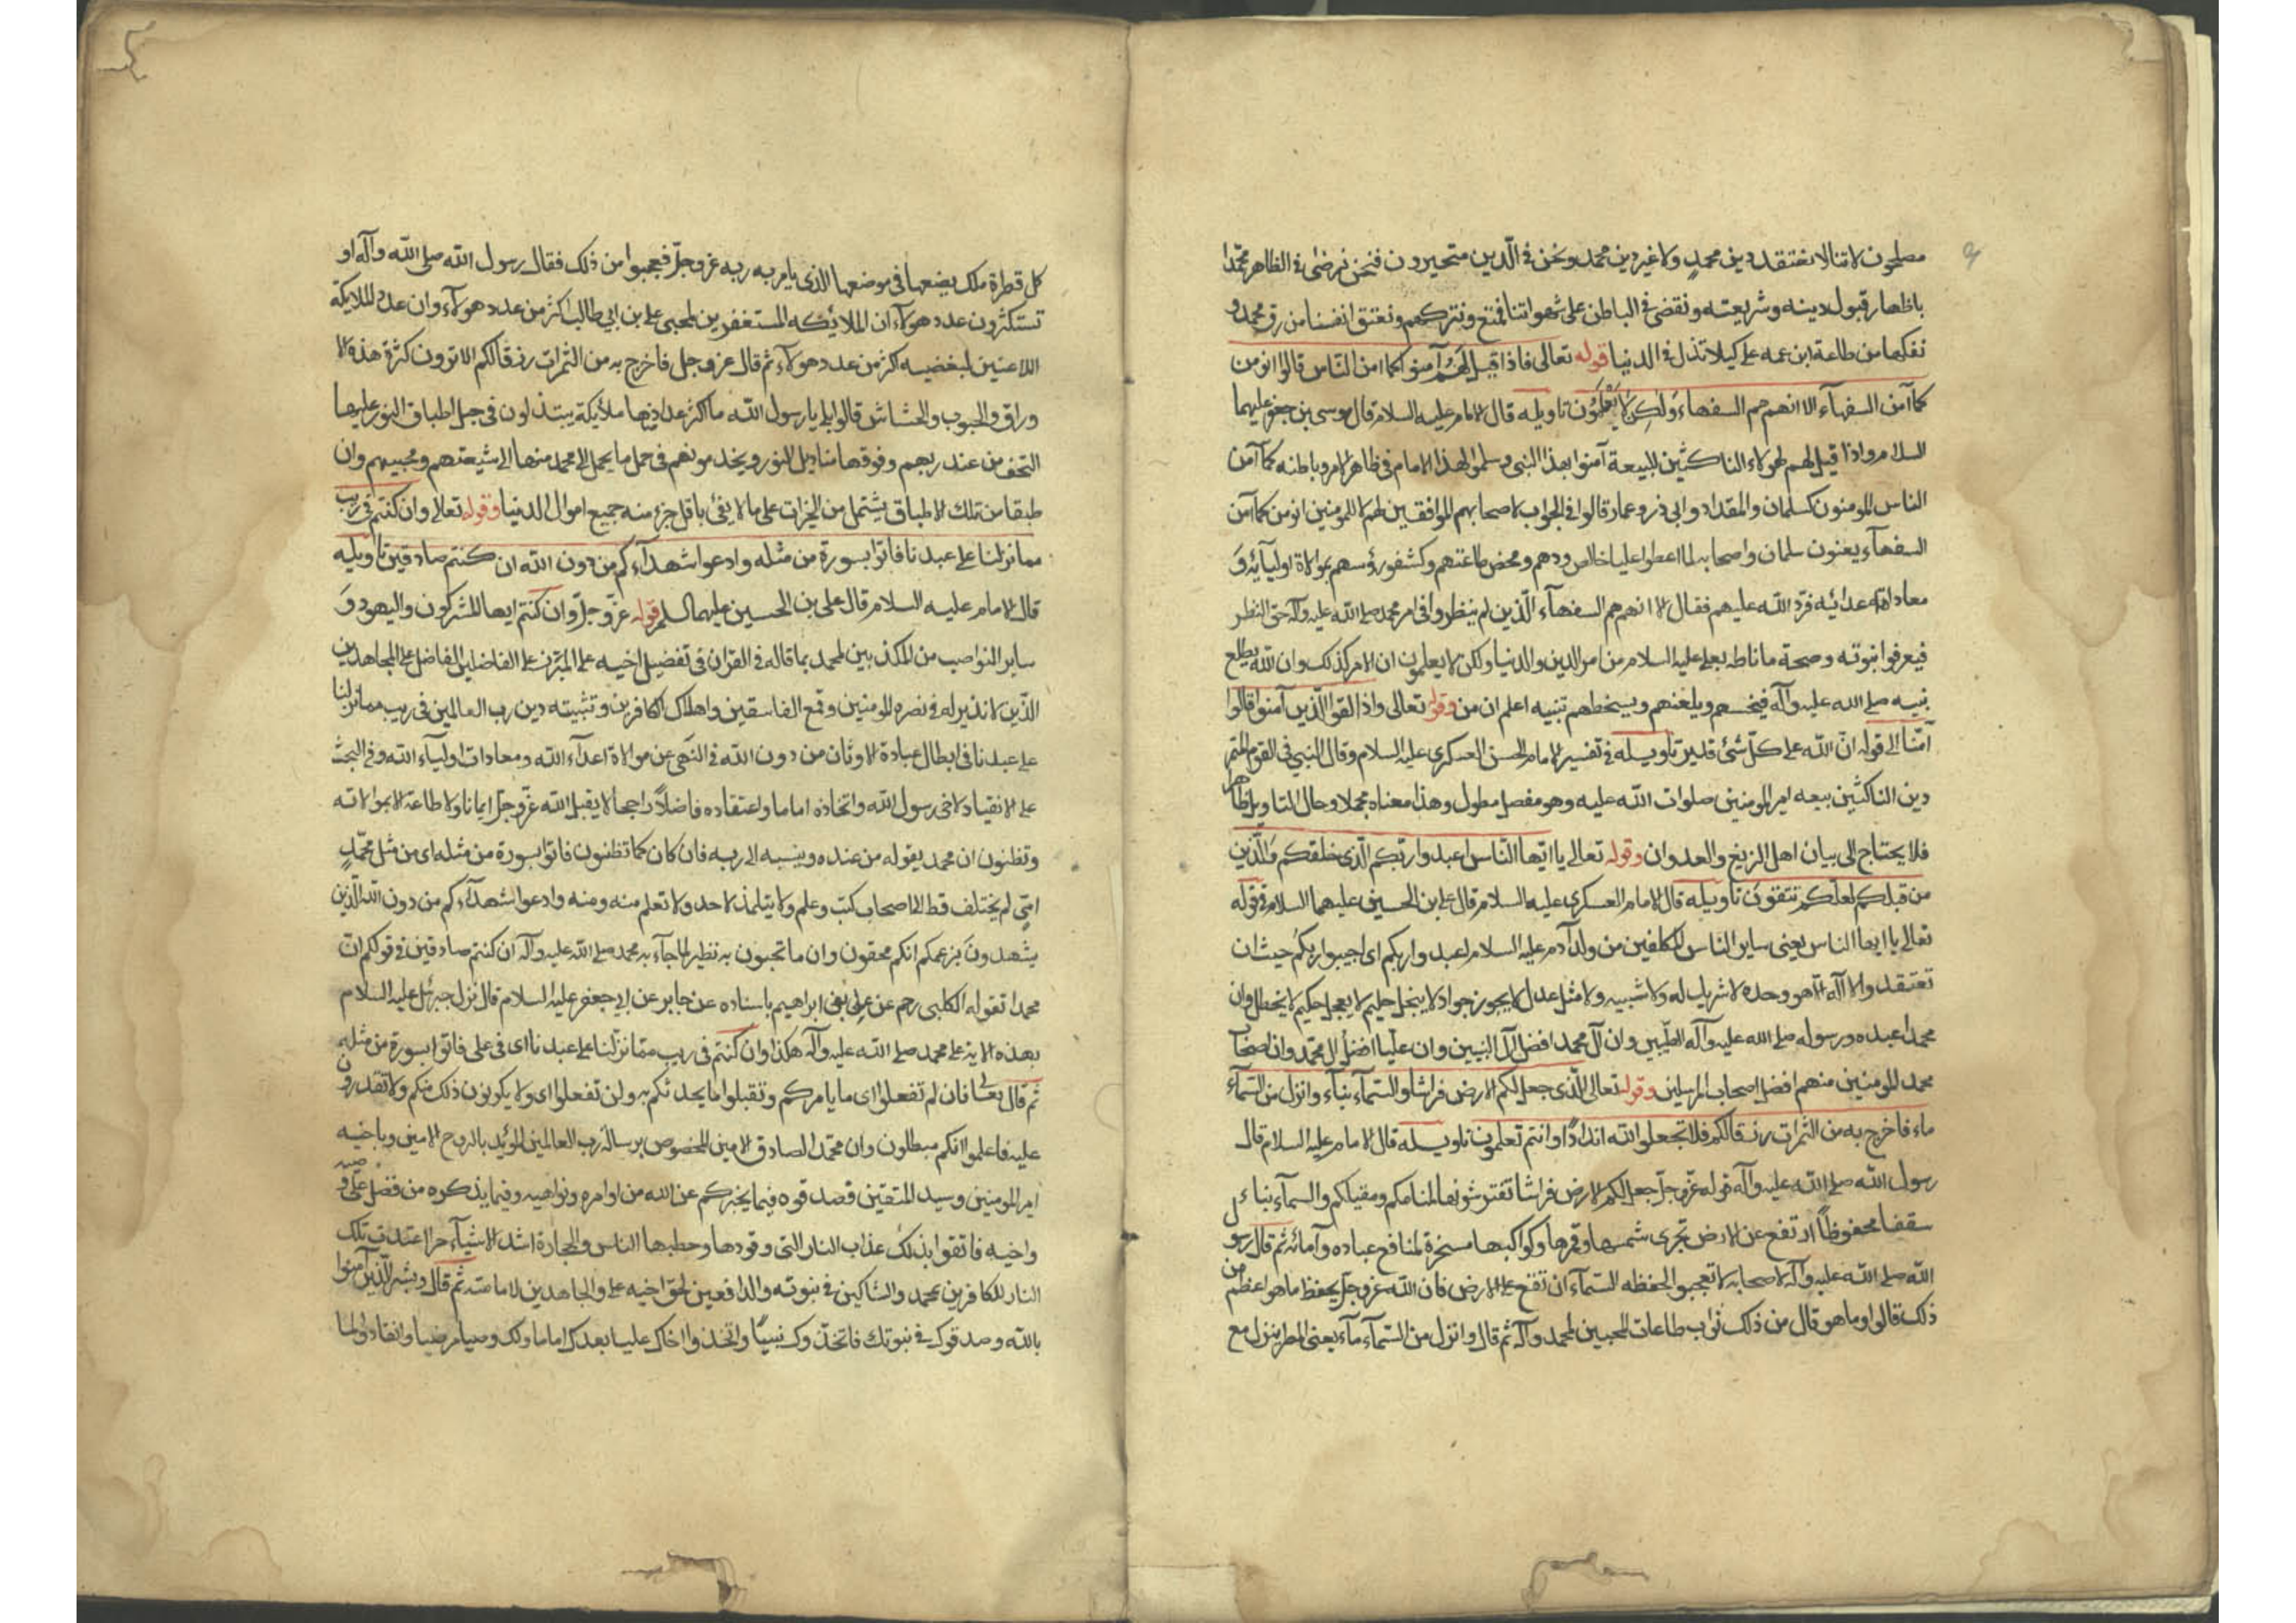 مصلحون لاننا لا نعتقد دين محمد ولا غير دين محمد ونحن في الدين متحيرون فنحن نرضى في الظاهر محمدا
باظهار قبول دينه وشريعته ونقضى في الباطن على شهواتنا فنتمتع ونتركهم ونعتق انفسنا من رق محمد و
نفكها من طاعة ابن عمه على كيلا نذل في الدنيا قوله تعالى فاذا قيل لهم آمنوا كما امن الناس قالوا انومن
كما آمن السفهآء الا انهم هم السفهاء ولكن لا يعلمون تاويله قال الامام عليه السلام قال موسى بن جعفر عليهما
السلام واذا قيل لهم لهولاء الناكثين للبيعة آمنوا بهذا النبي وسلموا لهذا الامام في ظاهر الامر وباطنه كما آمن
الناس المومنون كسلمان والمقداد وابي ذر وعمار قالوا في الجواب لاصحابهم الموافقين لهم لا للمومنين انومن كما آمن
السفهآء يعنون سلمان واصحابه لما اعطوا عليا خالص ودهم ومحض طاعتهم وكشفوا رؤسهم بموالاة اوليآئه و
معاداة اعدائه فرد الله عليهم فقال الا انهم هم السفهآء الذين لم ينظروا في امر محمد صلى الله عليه وآله حق النظر
فيعرفوا نبوته وصحة ما ناطه بعلى عليه السلام من امر الدين والدنيا ولكن لا يعلمون ان الامر كذلك وان الله يطلع
نبيه صلى الله عليه وآله فيخسهم ويلعنهم ويسخطهم تنبيه اعلم ان من وقوله تعالى واذا لقوا الذين آمنوا قالوا
آمنا الى قوله ان الله على كل شئ قدير تاويله في تفسير الامام الحسن العسكرى عليه السلام وقال النبي في القوم المتهم
دين الناكثين بيعه امير المومنين صلوات الله عليه وهو مفصل مطول وهذا معناه مجملا وحال التاويل ظاهر
فلا يحتاج الى بيان اهل الزيغ والعدوان وقوله تعالى يا ايها الناس اعبدوا ربكم الذى خلقكم والذين
من قبلكم لعلكم تتقون تاويله قال الامام العسكرى عليه السلام قال على بن الحسين عليهما السلام في قوله
تعالى يا ايها الناس يعنى ساير الناس المكلفين من ولد آدم عليه السلام اعبدوا ربكم اى اجيبوا ربكم حيث ان
تعتقدوا الا اله الا هو وحده لا شريك له ولا شبيه ولا مثل عدل لا يجور جواد لا يبخل حليم لا يعجل حكيم لا يخطل وان
محمدا عبده ورسوله صلى الله عليه وآله الطيبين وان آل محمد افضل آل النبيين وان عليا افضل آل محمد وان اصحاب
محمد المومنين منهم افضل اصحاب المرسلين وقوله تعالى الذى جعل لكم الارض فراشا والسمآء بنآء وانزل من السمآء
ماء فاخرج به من الثمرات رزقا لكم فلا تجعلوا لله اندادا وانتم تعلمون تاويله قال الامام عليه السلام قال
رسول الله صلى الله عليه وآله قوله عز وجل جعل لكم الارض فراشا تفترشونها لمنامكم ومقيلكم والسمآء بناء
سقفا محفوظا ارتفع عن الارض تجرى شمسها وقمرها وكواكبها مسخرة لمنافع عباده وآمائه ثم قال رسو
الله صلى الله عليه وآله لاصحابه لا تعجبوا لحفظه السمآء ان تقع على الارض فان الله عز وجل يحفظ ما هو اعظم من
ذلك قالوا وما هو قال من ذلك ثواب طاعات المحبين لمحمد وآله ثم قال وانزل من السمآء مآء يعنى المطر ينزل مع
كل قطرة ملك يضعها في موضعها الذى يامر به ربه عز وجل فعجبوا من ذلك فقال رسول الله صلى الله وآله او
تستكثرون عدد هولآء ان الملائكه المستغفرين لمحبي على بن ابي طالب اكثر من عدد هولآء وان عدد الملايكة
اللاعنين لمبغضيه اكثر من عدد هولآء ثم قال عز وجل فاخرج به من الثمرات رزقا لكم الا ترون كثرة هذه الا
وراق والحبوب والحشاش قالوا بلى يا رسول الله ما اكثر عددها ملائكة يبتذلون في حمل اطباق النور عليها
التحف من عند ربهم وفوقها مناديل النور ويخدمونهم في حمل ما يحمل آل محمد منها الى شيعتهم ومحبيهم وان
طبقا من تلك الاطباق يشتمل من الخيرات على ما لا يفى باقل جزء منه جميع اموال الدنيا وقوله تعالى وان كنتم في ريب
مما نزلنا على عبدنا فاتوا بسورة من مثله وادعوا شهدآءكم من دون الله ان كنتم صادقين تاويله
قال الامام عليه السلام قال على بن الحسين عليهما السلم قوله عز وجل وان كنتم ايها المشركون واليهود و
ساير النواصب من المكذبين لمحمد بما قاله في القران في تفضيل اخيه على المبرز على الفاضلين الفاضل على المجاهدين
الذين لا نذير له في نصره المومنين وقمع الفاسقين واهلاك الكافرين وتثبيته دين رب العالمين في ريب مما نزلنا
على عبدنا في ابطال عبادة الاوثان من دون الله في النهى عن موالاة اعدآء الله ومعادات اوليآء الله وفي البحث
على الانقياد لاخى رسول الله واتخاذه اماما واعتقاده فاضلا راجحا لا يقبل الله عز وجل ايمانا ولا طاعة الا بموالاته
وتظنون ان محمد يقوله من عنده وينسبه الى ربه فان كان كما تظنون فاتوا بسورة من مثله اى من مثل محمد
امى لم يختلف قط الى اصحاب كتب وعلم ولا يتلمذ لاحد ولا تعلم منه ومنه وادعوا شهدآءكم من دون الله الذين
يشهدون بزعمكم انكم محقون وان ما تجبون به نظير لما جآء به محمد صلى الله عليه وآله ان كنتم صادقين في قولكم ان
محمدا تقوله الكلبى رحم عن على بن ابراهيم باسناده عن جابر عن ابي جعفر عليه السلام قال نزل جبرئل عليه السلام
بهذه الاية على محمد صلى الله عليه وآله هكذا وان كنتم في ريب مما نزلنا على عبدنا اى في على فاتوا بسورة من مثله
ثم قال تعالى فان لم تفعلوا اى ما يامركم وتقبلوا ما يحدثكم به ولن تفعلوا اى ولا يكونون ذلك منكم ولا تقدرون
عليه فاعلموا انكم مبطلون وان محمد الصادق الامين المخصوص برسالة رب العالمين المؤيد بالروح الامين وباخيه
امير المومنين وسيد المتقين فصدقوه فيما يخبركم عن الله من اوامره ونواهيه وفيما يذكره من فضل على وصيه
واخيه فاتقوا بذلك عذاب النار التى وقودها وحطبها الناس والحجارة اشد الاشيآء حرا اعتدت تلك
النار للكافرين بمحمد والشاكين في نبوته والدافعين لحق اخيه على والجاهدين لامامته ثم قال وبشر الذين آمنوا
بالله وصدقوك في نبوتك فاتخذوك نبيا واتخذوا اخاك عليا بعدك اماما ولك وصيا مرضيا وانقادوا لما